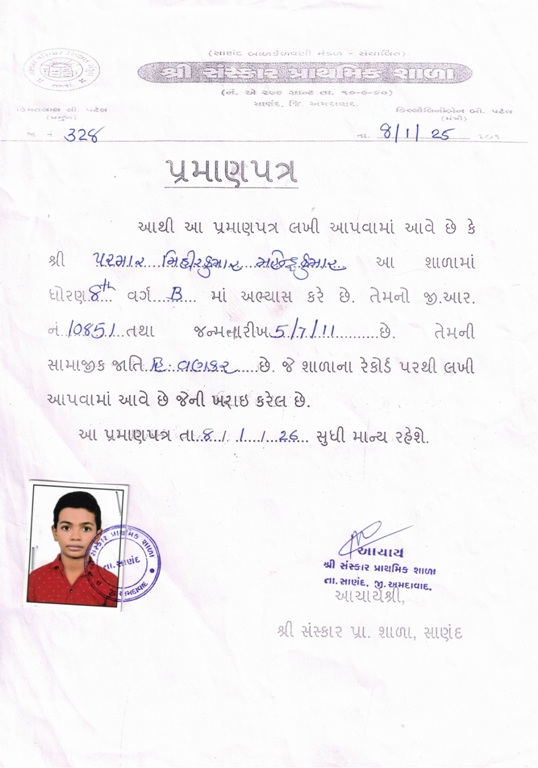 (સાણંદ બાળકેળવણી મંડળ - સંચાલિત)
શ્રી સંસ્કાર પ્રાથમિક શાળા
સાણંદ, જિ. અમદાવાદ.
હિંમતલાલ બી. પટેલ
(પ્રમુખ)
બી. પટેલ
(મંત્રી)
328
તા. 8/1/25
પ્રમાણપત્ર
આથી આ પ્રમાણપત્ર લખી આપવામાં આવે છે કે
શ્રી પરમાર મિહીરકુમાર મહેન્દ્રકુમાર આ શાળામાં
ધોરણ 8th વર્ગ B માં અભ્યાસ કરે છે. તેમનો જી.આર.
નં 10851 તથા જન્મતારીખ 5/7/11 છે. તેમની
સામાજીક જાતિ હિ. વણકર છે. જે શાળાના રેકોર્ડ પરથી લખી
આપવામાં આવે છે જેની ખરાઇ કરેલ છે.
આ પ્રમાણપત્ર તા. 8/1/26 સુધી માન્ય રહેશે.
સંસ્કાર પ્રાથમિક શાળા
તા. સાણંદ
આચાર્ય
શ્રી સંસ્કાર પ્રાથમિક શાળા
તા. સાણંદ, જી. અમદાવાદ.
આચાર્યશ્રી,
શ્રી સંસ્કાર પ્રા. શાળા, સાણંદ